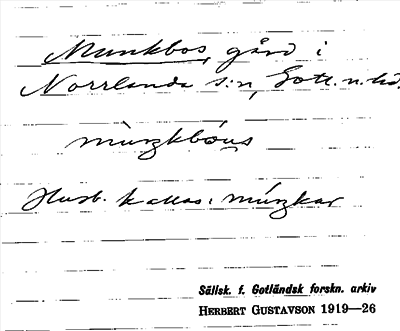 Munkbos, gård i
Norrlanda s:n, Gotl. n. hd.
mùŋkbo̯us
Husb. kallas: múŋkar
Sällsk. f. Gotländsk forskn. arkiv
HERBERT GUSTAVSON 1919—26